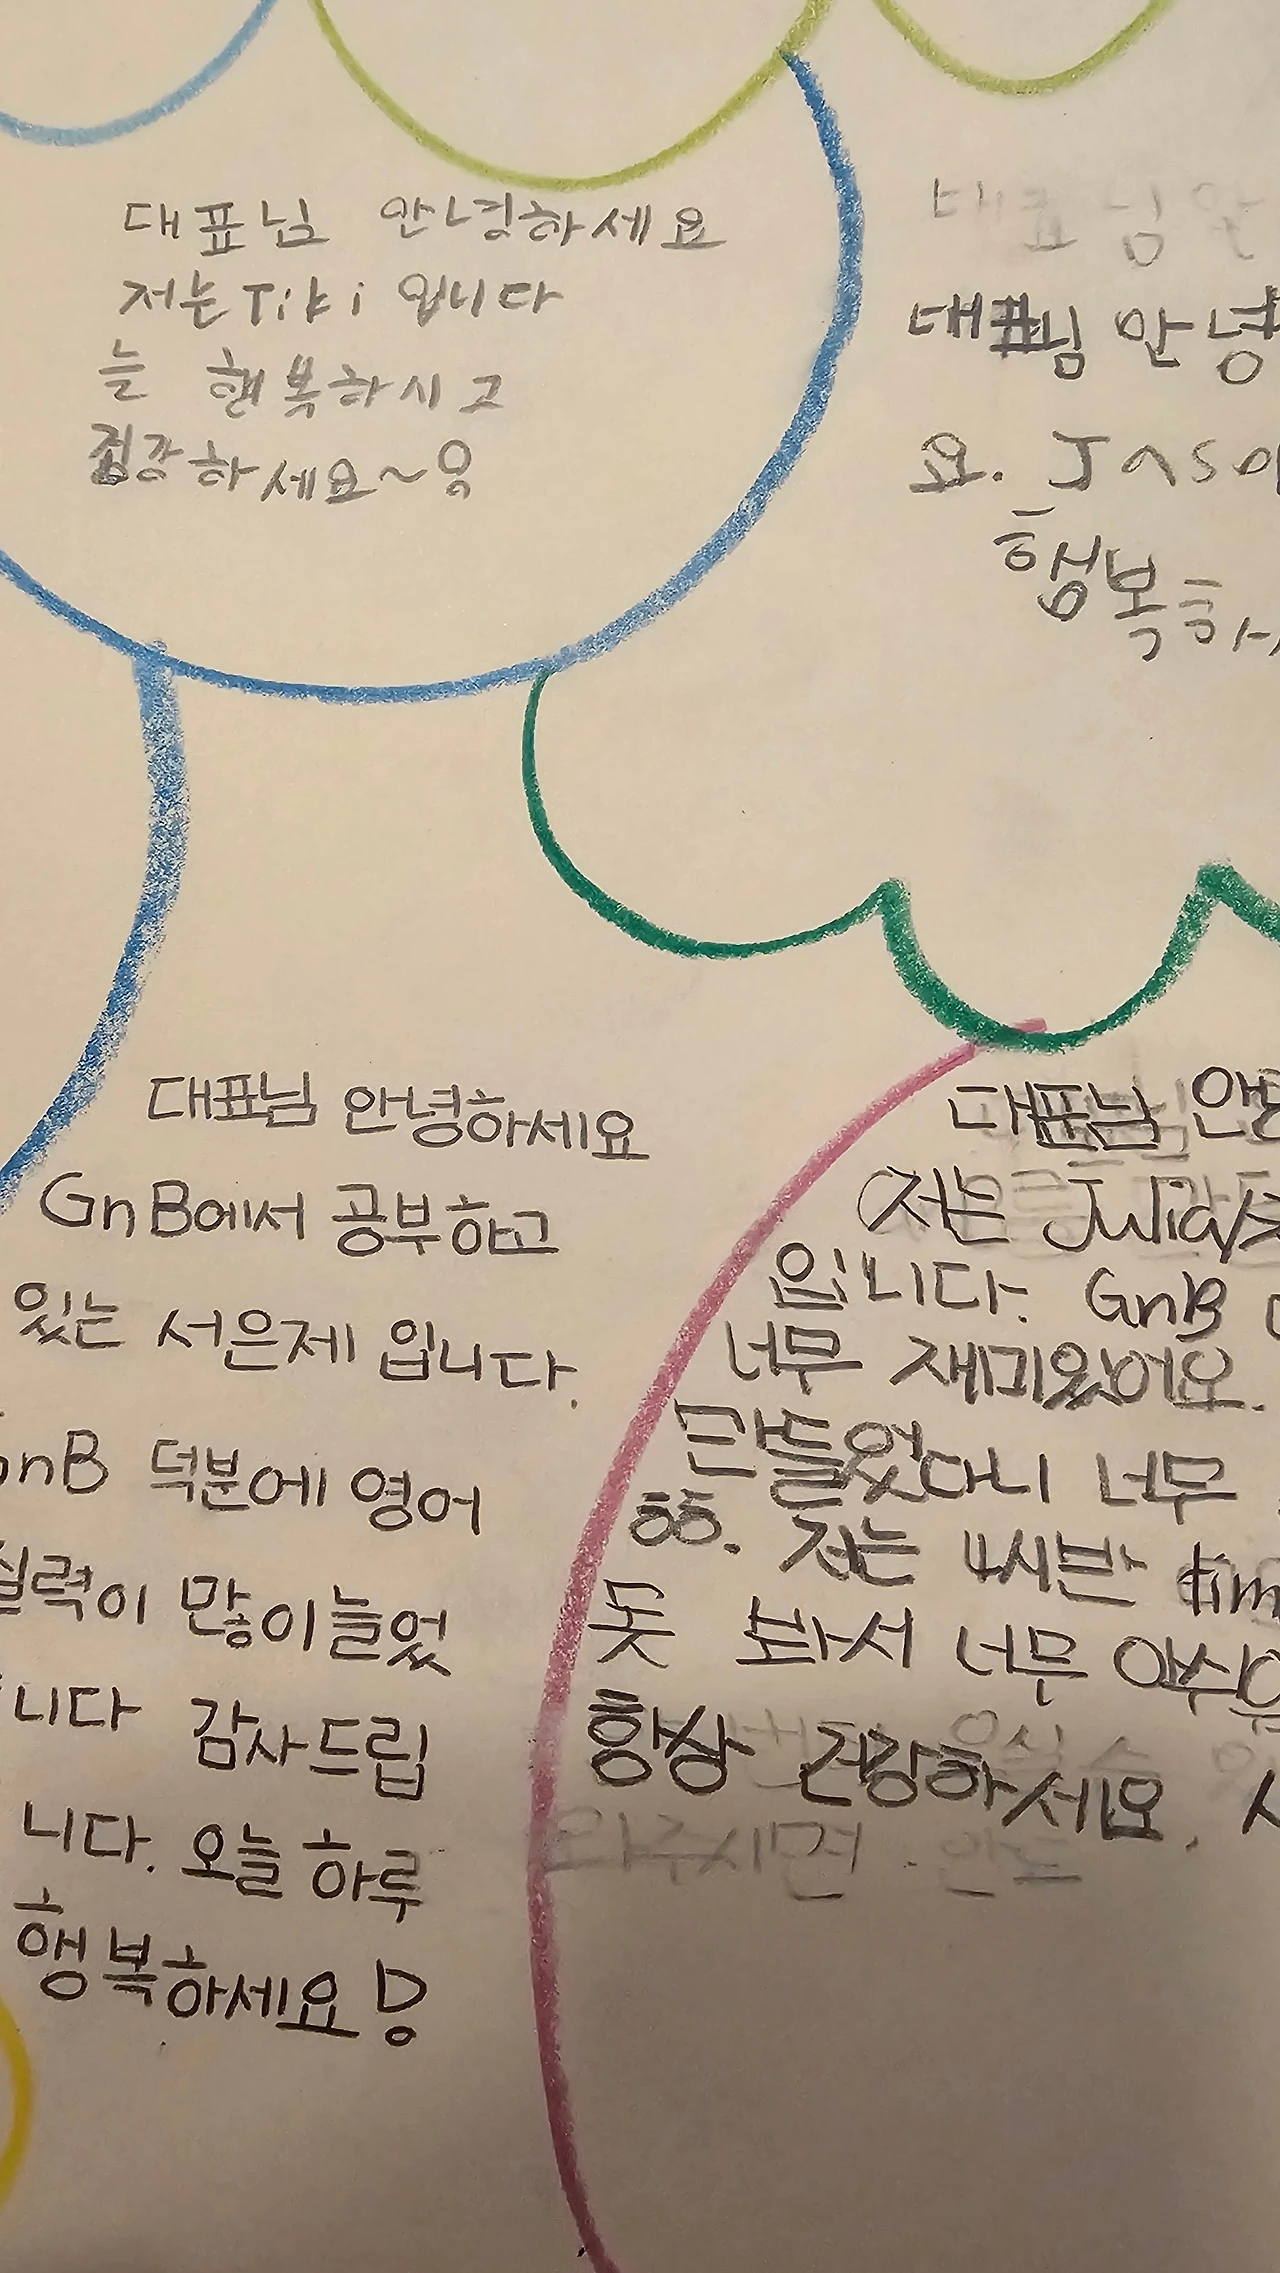 대표님 안녕하세요
저는 Tiki 입니다
늘 행복하시고
건강하세요~
대표님 안녕
요. Jaso
행복하
대표님 안녕하세요
GnB에서 공부하고
있는 서은제 입니다.
GnB 덕분에 영어
실력이 많이 늘었
니다 감사드립
니다. 오늘 하루
행복하세요!
대표님 안녕
저는 Julia
입니다. GnB
너무 재미있어요.
만들었다니 너무
ㅎㅎ. 저는 4시반 tim
못 봐서 너무 아쉬
항상 건강하세요.